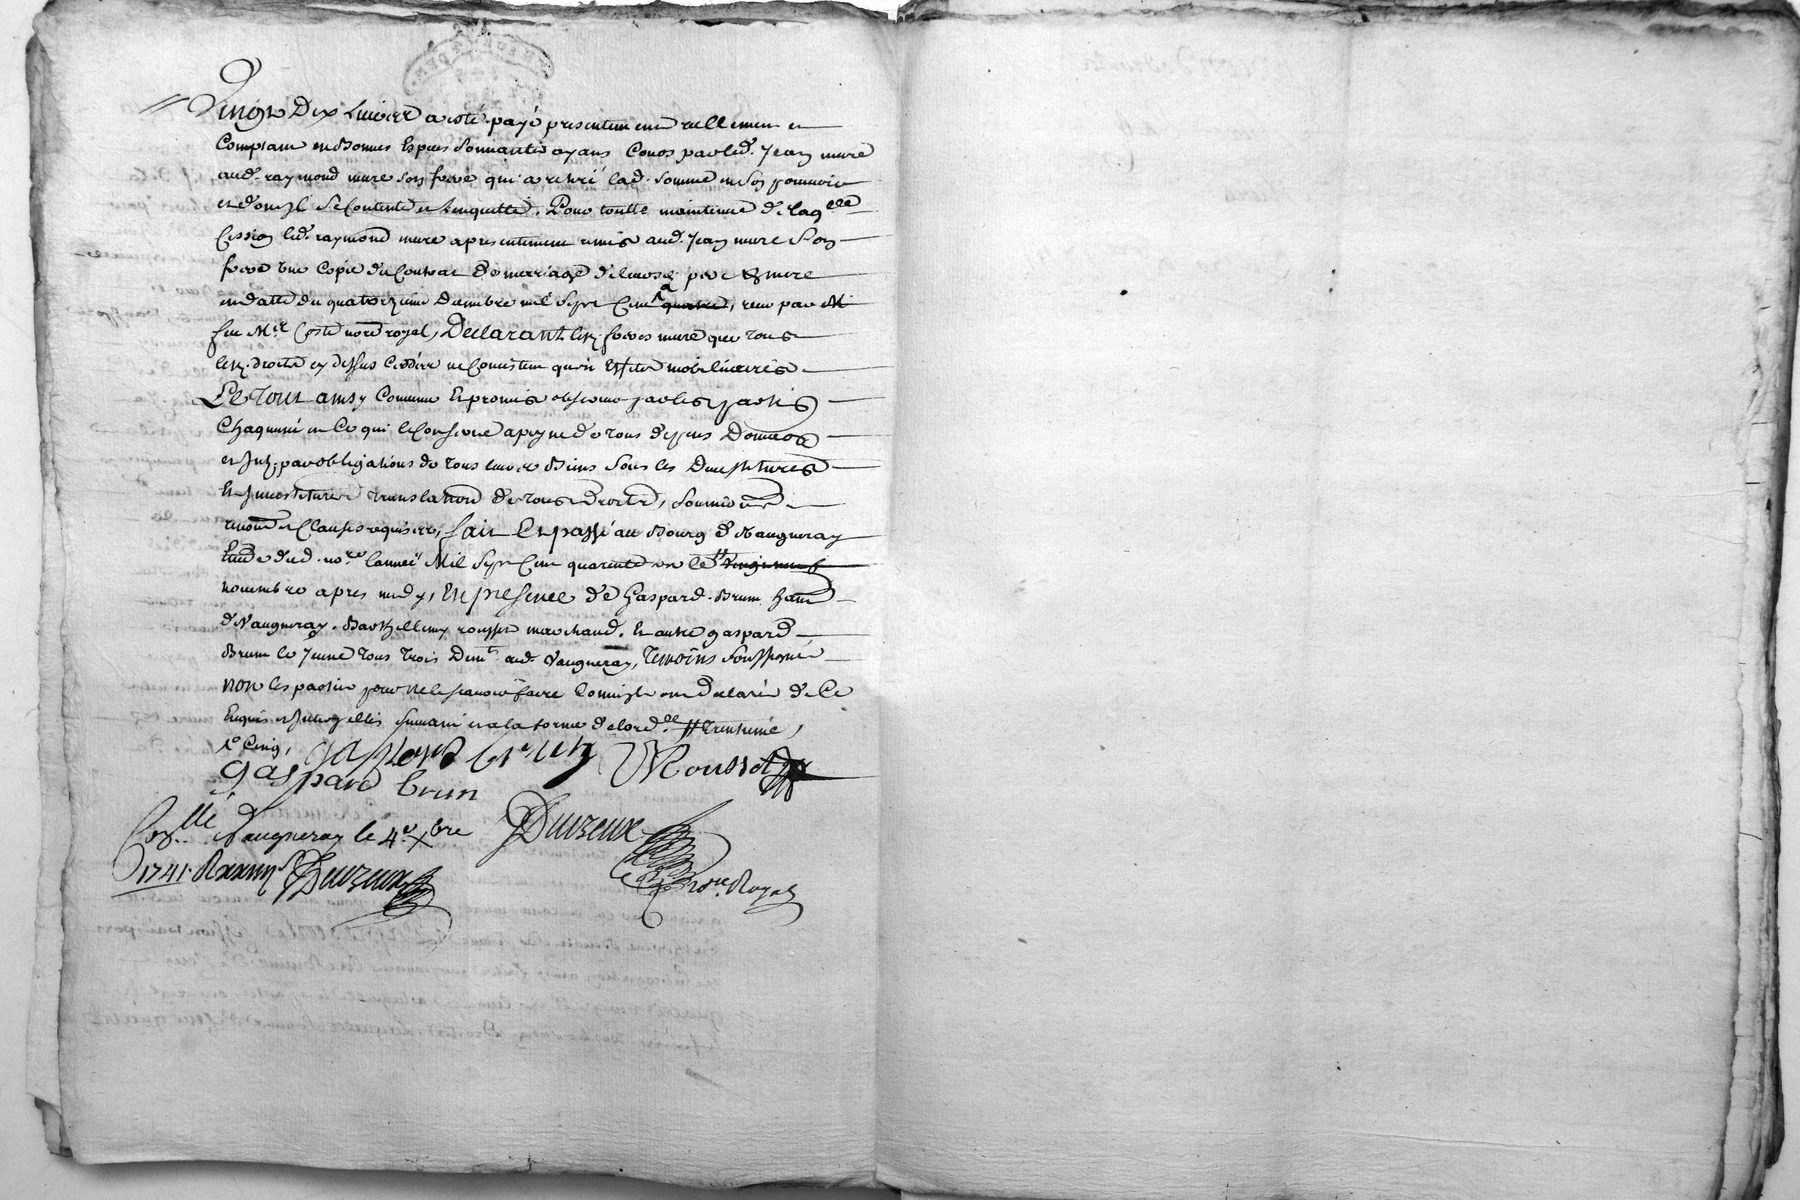 Vingt Dix Livres a esté payé presentement reellement et
Comptant en Bonnes Especes Sonnantes ayans Cours par led. Jean mure
aud. raymond mure son frere qui a retiré lad. somme en son pouvoir
et dont Il se Contente et len quitte. Pour toutte maintenue de laqlle
Cession led. raymond mure a presentement remis aud. Jean mure Son
frere une Copie du Contrat De marriage de leurs pere & mere
en datte du quatorzieme Decembre mil Sept Cent quatre, receu par M
feu Mre Coste nore royal, Declarant lesd. freres mure que tous
lesd. droits cy dessus Cedés ne Consistent qu'en Effets mobiliaires
Le Tout ainsy Convenu Et promis observer par les parties
Chaqunne en Ce qui le Conserne a peyne de tous depens Domages
et Int. par obligations de tous leurs Biens Sous les Devestitures
Investitures translation de tous droits, Soumissions
renon. et Clauses requises, fait Et passé au Bourg de Vaugneray
Etude dud. nore lannée Mil Sept Cent quarente un le # vingt neuf
novembre apres midy, En presence de Gaspard Brun hant
de Vaugneray, Barthellemy rousset marchand, Et autre gaspard
Brun le Jeune tous trois Demt. aud. Vaugneray, temoins Soussignés
non les parties pour ne le scavoir faire Comm'Ils ont declaré de Ce
Enquis et Interpellés suivant et a la forme de lord.ce # trentieme,
R. Cinq,
gaspard brun Rousset
gaspard brun
Coллé à Vaugneray le 4e Xbre Duvzeux
1741. R Duvzeux nore Royal